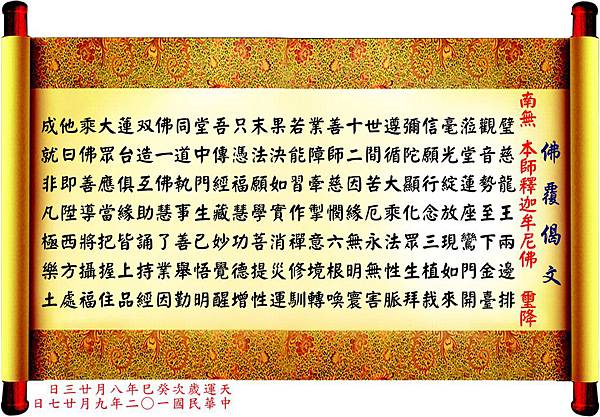 佛覆偈文
南無 本師釋迦牟尼佛 璽降
璧慈龍王兩邊排
觀音勢至下金臺
蒞堂蓮座鸞門開
毫光綻放現如來
信願行念三植栽
彌陀顯化眾生拜
遵循大乘法性脈
世間苦厄永無害
十二因緣無明寰
善師慈憫六根喚
業障牽掣意境轉
若能習作禪修馴
果決如實消災運
末法願學菩提性
只憑福慧功德增
吾傳經藏妙覺醒
堂中門生已悟明
同道執事善舉勤
佛一佛慧了業因
双造互助誦持經
蓮台俱緣皆上品
大眾應當把握住
乘佛善導將攝福
他日即陞西方處
成就非凡極樂土
天運歲次癸巳年八月廿三日
中華民國一〇二年九月廿七日